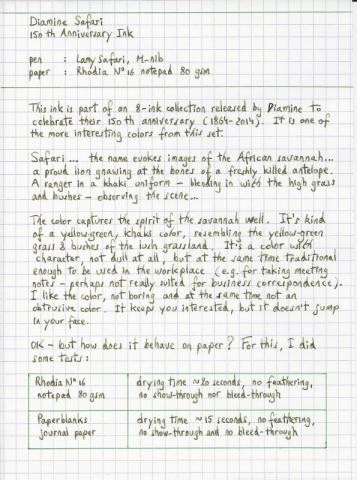 Diamine Safari
150th Anniversary Ink
pen : Lamy Safari, M-nib
paper : Rhodia N°16 notepad 80 gsm
This ink is part of an 8-ink collection released by Diamine to
celebrate their 150th anniversary (1864-2014). It is one of
the more interesting colors from this set.
Safari... the name evokes images of the African savannah...
a proud lion gnawing at the bones of a freshly killed antelope.
A ranger in a khaki uniform - blending in with the high grass
and bushes - observing the scene...
The color captures the spirit of the savannah well. It's kind
of a yellow-green, khaki color, resembling the yellow-green
grass & bushes of the lush grassland. It's a color with
character, not dull at all, but at the same time traditional
enough to be used in the workplace (e.g. for taking meeting
notes - perhaps not really suited for business correspondence).
I like the color, not boring and at the same time not an
obtrusive color. It keeps you interested, but it doesn't jump
in your face.
OK - but how does it behave on paper? For this, I did
some tests:
Rhodia N°16 drying time ~20 seconds, no feathering,
notepad 80 gsm no show-through nor bleed-through
Paperblanks drying time ~15 seconds, no feathering,
journal paper no show-through and no bleed-through